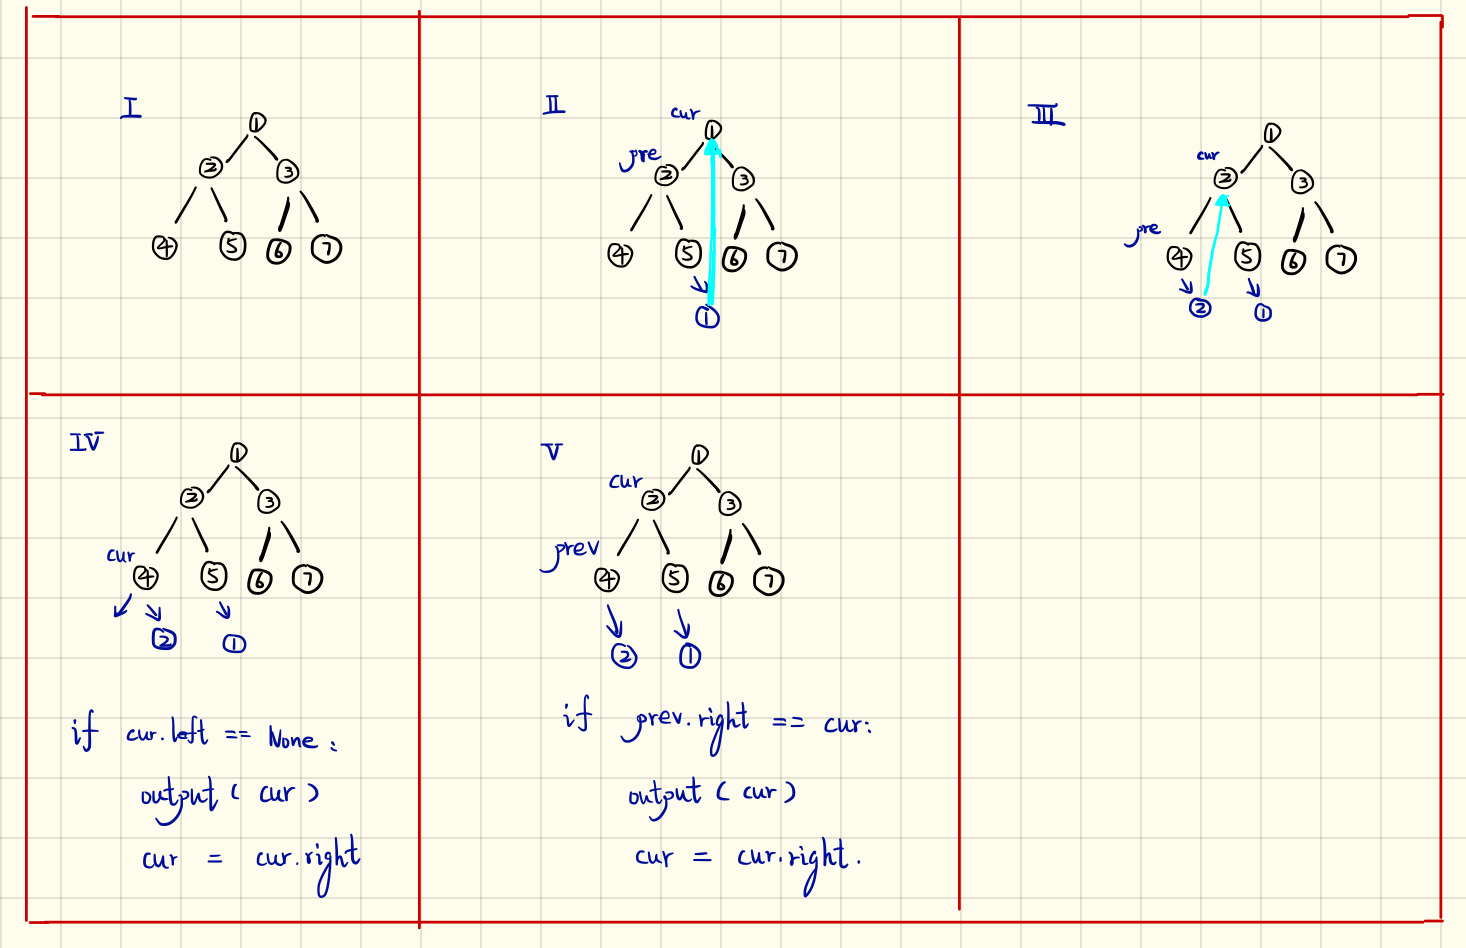 I
1
2 3
4 5 6 7
II
cur
1
pre
2 3
4 5 6 7
1
III
1
cur
2 3
pre
4 5 6 7
2 1
IV
1
2 3
cur
4 5 6 7
2 1
if cur.left == None:
output( cur )
cur = cur.right
V
1
cur
2 3
prev
4 5 6 7
2 1
if prev.right == cur:
output( cur )
cur = cur.right.